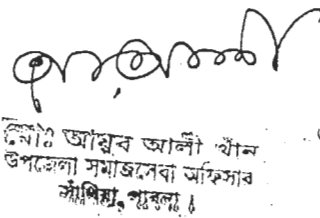 মোঃ আয়ুব আলী খান
উপজেলা সমাজসেবা অফিসার
সাঁথিয়া, পাবনা।